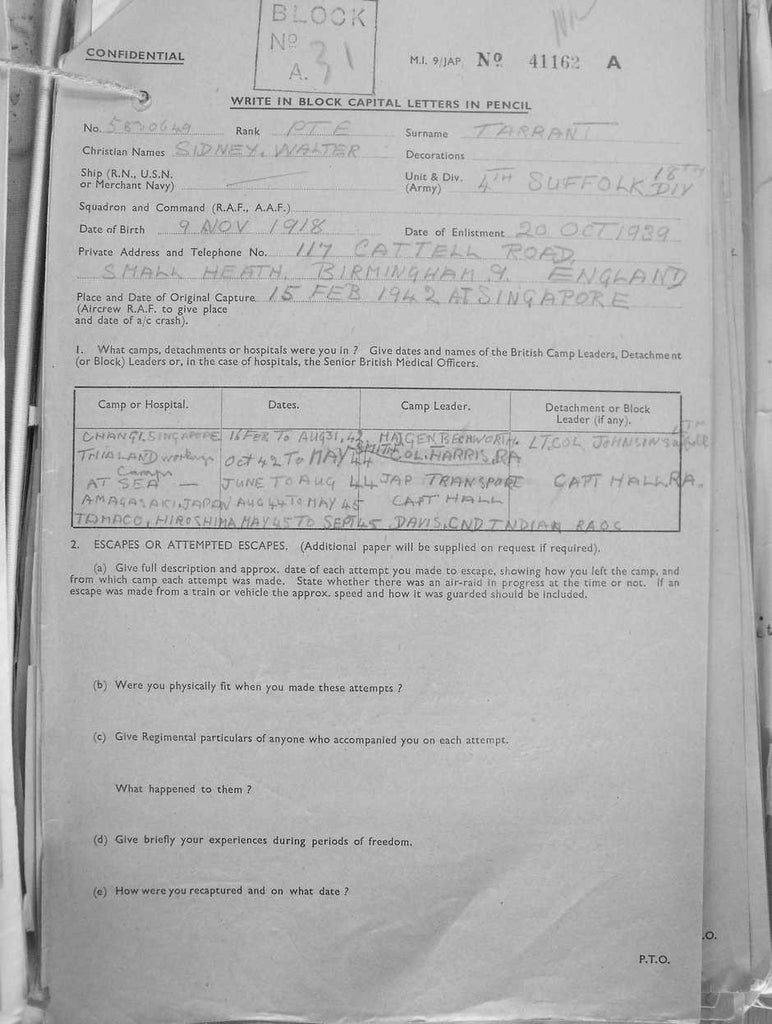 BLOCK
Nº
A. 31
CONFIDENTIAL
M.I. 9/JAP Nº 41162 A
WRITE IN BLOCK CAPITAL LETTERS IN PENCIL
No. 5830649 Rank PTE Surname TARRANT
Christian Names SIDNEY. WALTER Decorations
Ship (R.N., U.S.N. or Merchant Navy)
Unit & Div. (Army) 4TH SUFFOLK 18TH DIV
Squadron and Command (R.A.F., A.A.F.)
Date of Birth 9 NOV 1918 Date of Enlistment 20 OCT 1939
Private Address and Telephone No. 117 CATTELL ROAD,
SMALL HEATH. BIRMINGHAM 9. ENGLAND
Place and Date of Original Capture 15 FEB 1942 AT SINGAPORE
(Aircrew R.A.F. to give place
and date of a/c crash).
1. What camps, detachments or hospitals were you in ? Give dates and names of the British Camp Leaders, Detachment
(or Block) Leaders or, in the case of hospitals, the Senior British Medical Officers.
Camp or Hospital. Dates. Camp Leader. Detachment or Block
Leader (if any).
CHANGI. SINGAPORE 16 FEB TO AUG 31, 42 MAJ GEN BECKWORTH LT. COL JOHNSON
THIALAND working Camps OCT 42 TO MAY 44 SMITH COL. HARRIS, RA
AT SEA — JUNE TO AUG 44 JAP TRANSPORT CAPT HALL. RA.
AMAGASAKI, JAPAN AUG 44 TO MAY 45 CAPT HALL
TAMACO, HIROSHIMA MAY 45 TO SEPT 45 DAVIS, CND INDIAN RAOC
2. ESCAPES OR ATTEMPTED ESCAPES. (Additional paper will be supplied on request if required).
(a) Give full description and approx. date of each attempt you made to escape, showing how you left the camp, and
from which camp each attempt was made. State whether there was an air-raid in progress at the time or not. If an
escape was made from a train or vehicle the approx. speed and how it was guarded should be included.
(b) Were you physically fit when you made these attempts ?
(c) Give Regimental particulars of anyone who accompanied you on each attempt.
What happened to them ?
(d) Give briefly your experiences during periods of freedom.
(e) How were you recaptured and on what date ?
.O.
P.T.O.